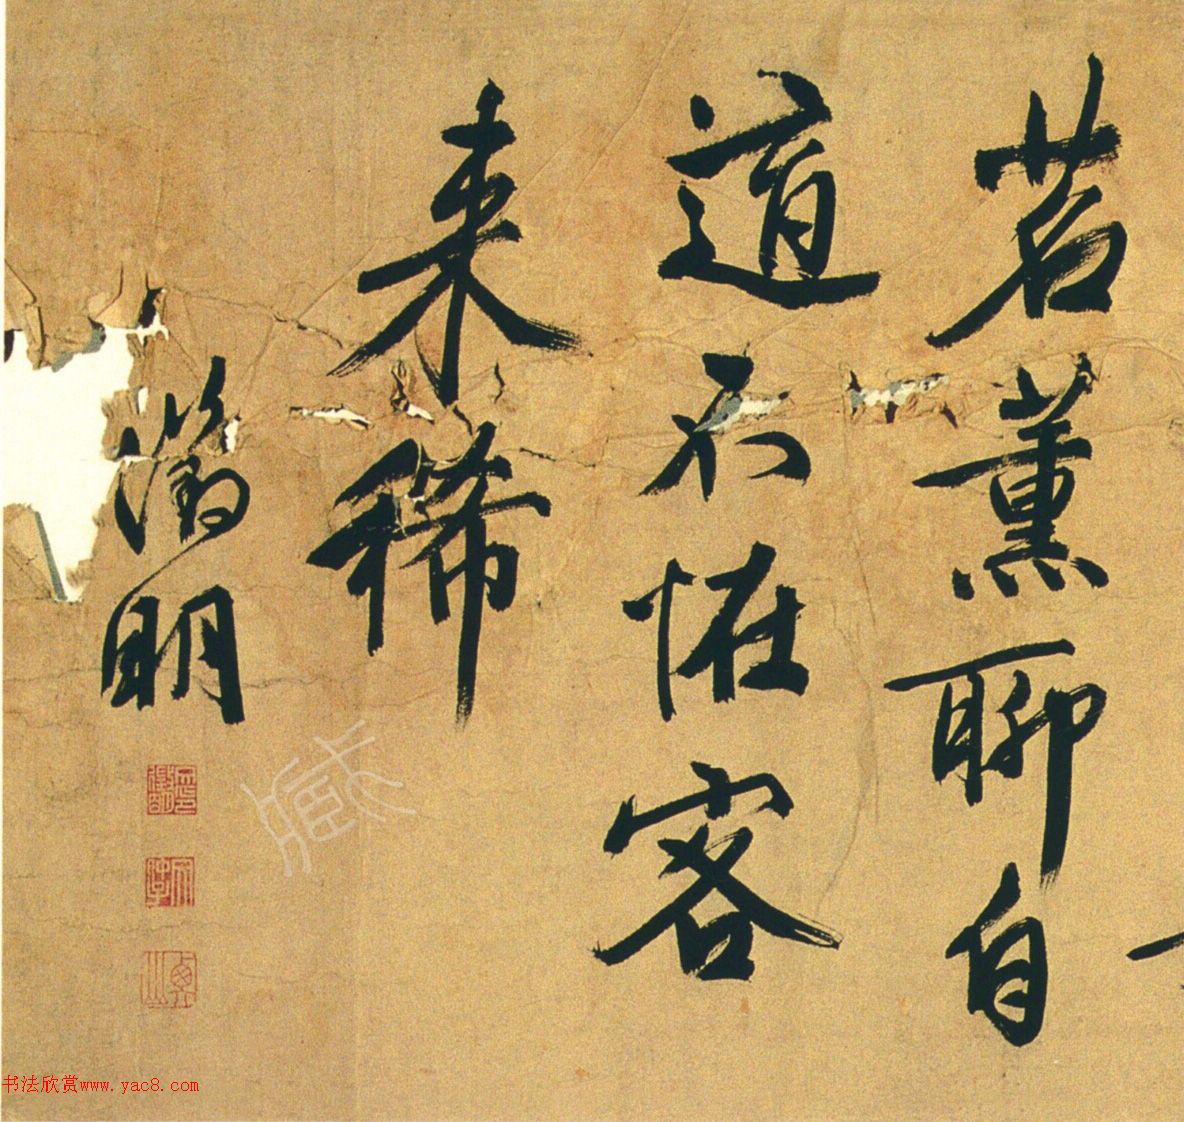 茗薰聊自
道不惟客
来稀
徵明
书法欣赏www.yac8.com